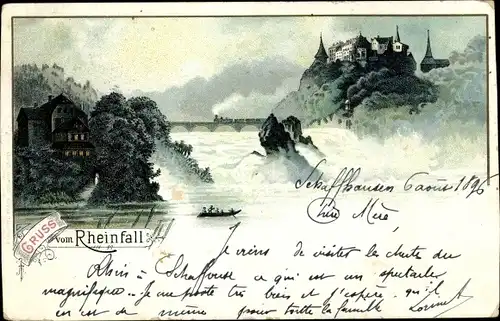 GRUSS
vom Rheinfall
Schaffhausen 6 août 1896
Chère Mère
Je viens de visiter la chute du
Rhin à Schaffouse ce qui est un spectacle
magnifique... Je me porte très bien et j'espère qu'il
en est de même pour toute la famille